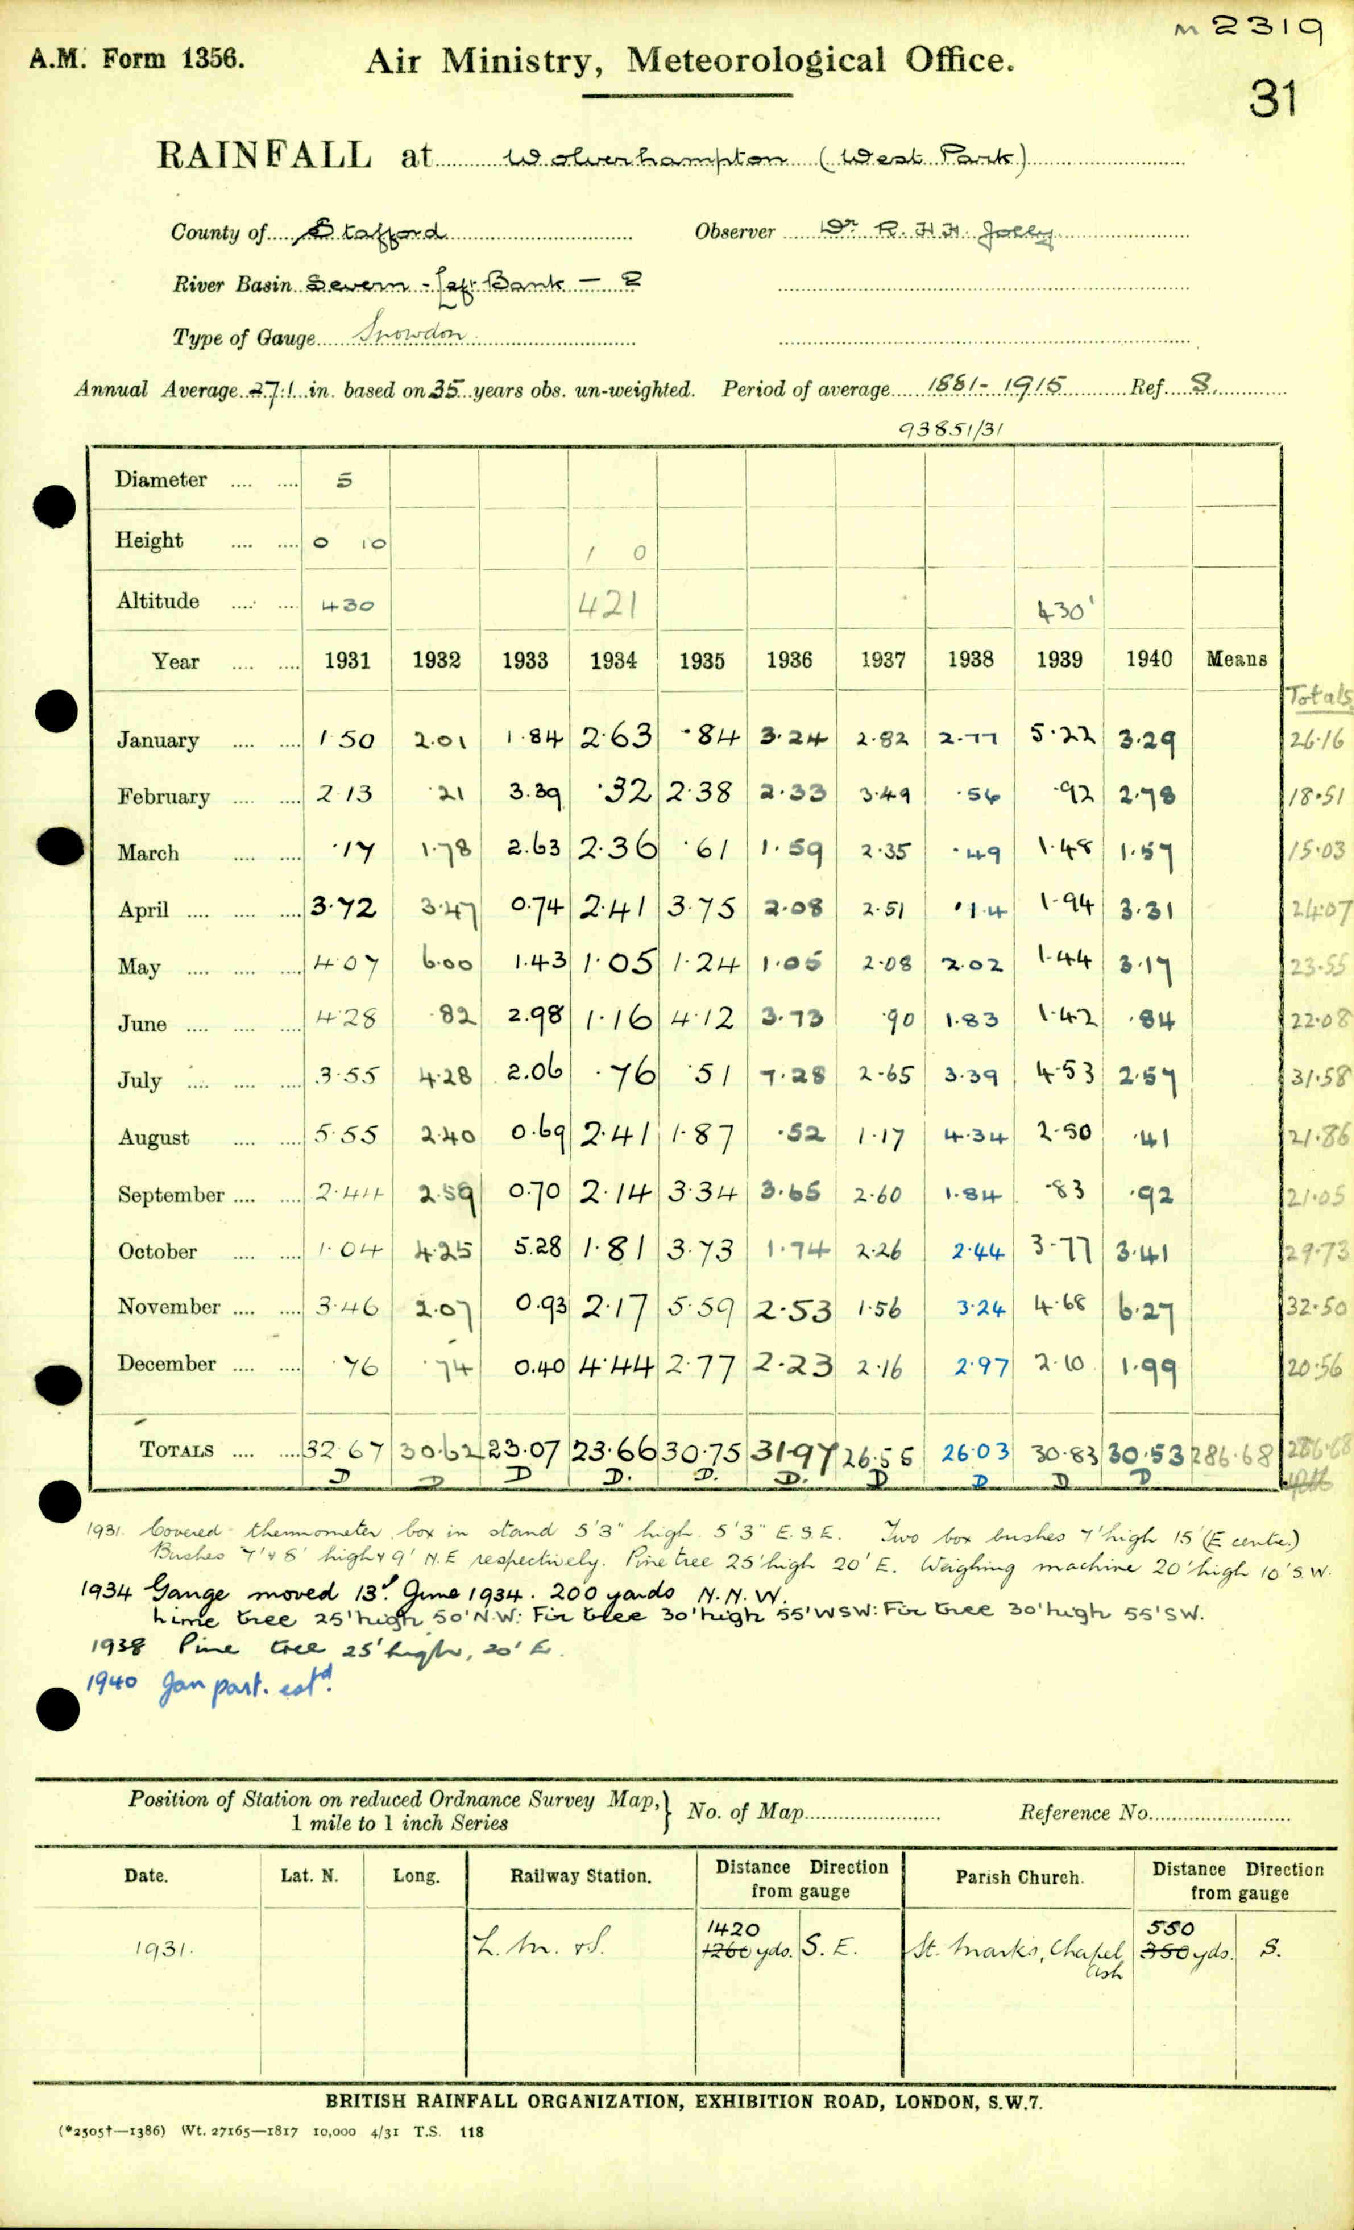 M 2319
A.M. Form 1356. Air Ministry, Meteorological Office.
31
RAINFALL at Wolverhampton (West Park)
County of Stafford Observer Dr R. H. H. Jolly
River Basin Severn - Left Bank - 2
Type of Gauge Snowdon
Annual Average 27.1 in. based on 35 years obs. un-weighted. Period of average 1881-1915 Ref. S.
93851/31
Diameter .... .... 5
Height .... .... 0 10 1 0
Altitude .... .... 430 421 430'
Year .... .... 1931 1932 1933 1934 1935 1936 1937 1938 1939 1940 Means
Totals
January .... .... 1.50 2.01 1.84 2.63 .84 3.24 2.82 2.77 5.22 3.29 26.16
February .... .... 2.13 .21 3.39 .32 2.38 2.33 3.49 .56 .92 2.78 18.51
March .... .... .17 1.78 2.63 2.36 .61 1.59 2.35 .49 1.48 1.57 15.03
April .... .... .... 3.72 3.47 0.74 2.41 3.75 2.08 2.51 .14 1.94 3.31 24.07
May .... .... .... 4.07 6.00 1.43 1.05 1.24 1.05 2.08 2.02 1.44 3.17 23.55
June .... .... .... 4.28 .82 2.98 1.16 4.12 3.73 .90 1.83 1.42 .84 22.08
July .... .... .... 3.55 4.28 2.06 .76 .51 7.28 2.65 3.39 4.53 2.57 31.58
August .... .... 5.55 2.40 0.69 2.41 1.87 .52 1.17 4.34 2.50 .41 21.86
September .... .... 2.44 2.59 0.70 2.14 3.34 3.65 2.60 1.84 .83 .92 21.05
October .... .... 1.04 4.25 5.28 1.81 3.73 1.74 2.26 2.44 3.77 3.41 29.73
November .... .... 3.46 2.07 0.93 2.17 5.59 2.53 1.56 3.24 4.68 6.27 32.50
December .... .... .76 .74 0.40 4.44 2.77 2.23 2.16 2.97 2.10 1.99 20.56
TOTALS .... .... 32.67 30.62 23.07 23.66 30.75 31.97 26.55 26.03 30.83 30.53 286.68 286.68
D D D D. D. D. D D D D
1931. Covered thermometer box in stand 5'3" high 5'3" E.S.E. Two box bushes 7' high 15' (E centre)
Bushes 7' & 8' high & 9' N.E respectively. Pine tree 25' high 20' E. Weighing machine 20' high 10' S.W.
1934 Gauge moved 13th June 1934. 200 yards N.N.W.
Lime tree 25' high 50' N.W: Fir tree 30' high 55' WSW: Fir tree 30' high 55' SW.
1938 Pine tree 25' high, 20' E.
1940 Jan part. estd.
Position of Station on reduced Ordnance Survey Map,} No. of Map Reference No.
1 mile to 1 inch Series
Date. Lat. N. Long. Railway Station. Distance Direction from gauge Parish Church. Distance Direction from gauge
1420 550
1931. L. M. & S. 1260 yds. S. E. St. Marks, Chapel 350 yds. S.
Ash
BRITISH RAINFALL ORGANIZATION, EXHIBITION ROAD, LONDON, S.W.7.
(*2505†—1386) Wt. 27165—1817 10,000 4/31 T.S. 118